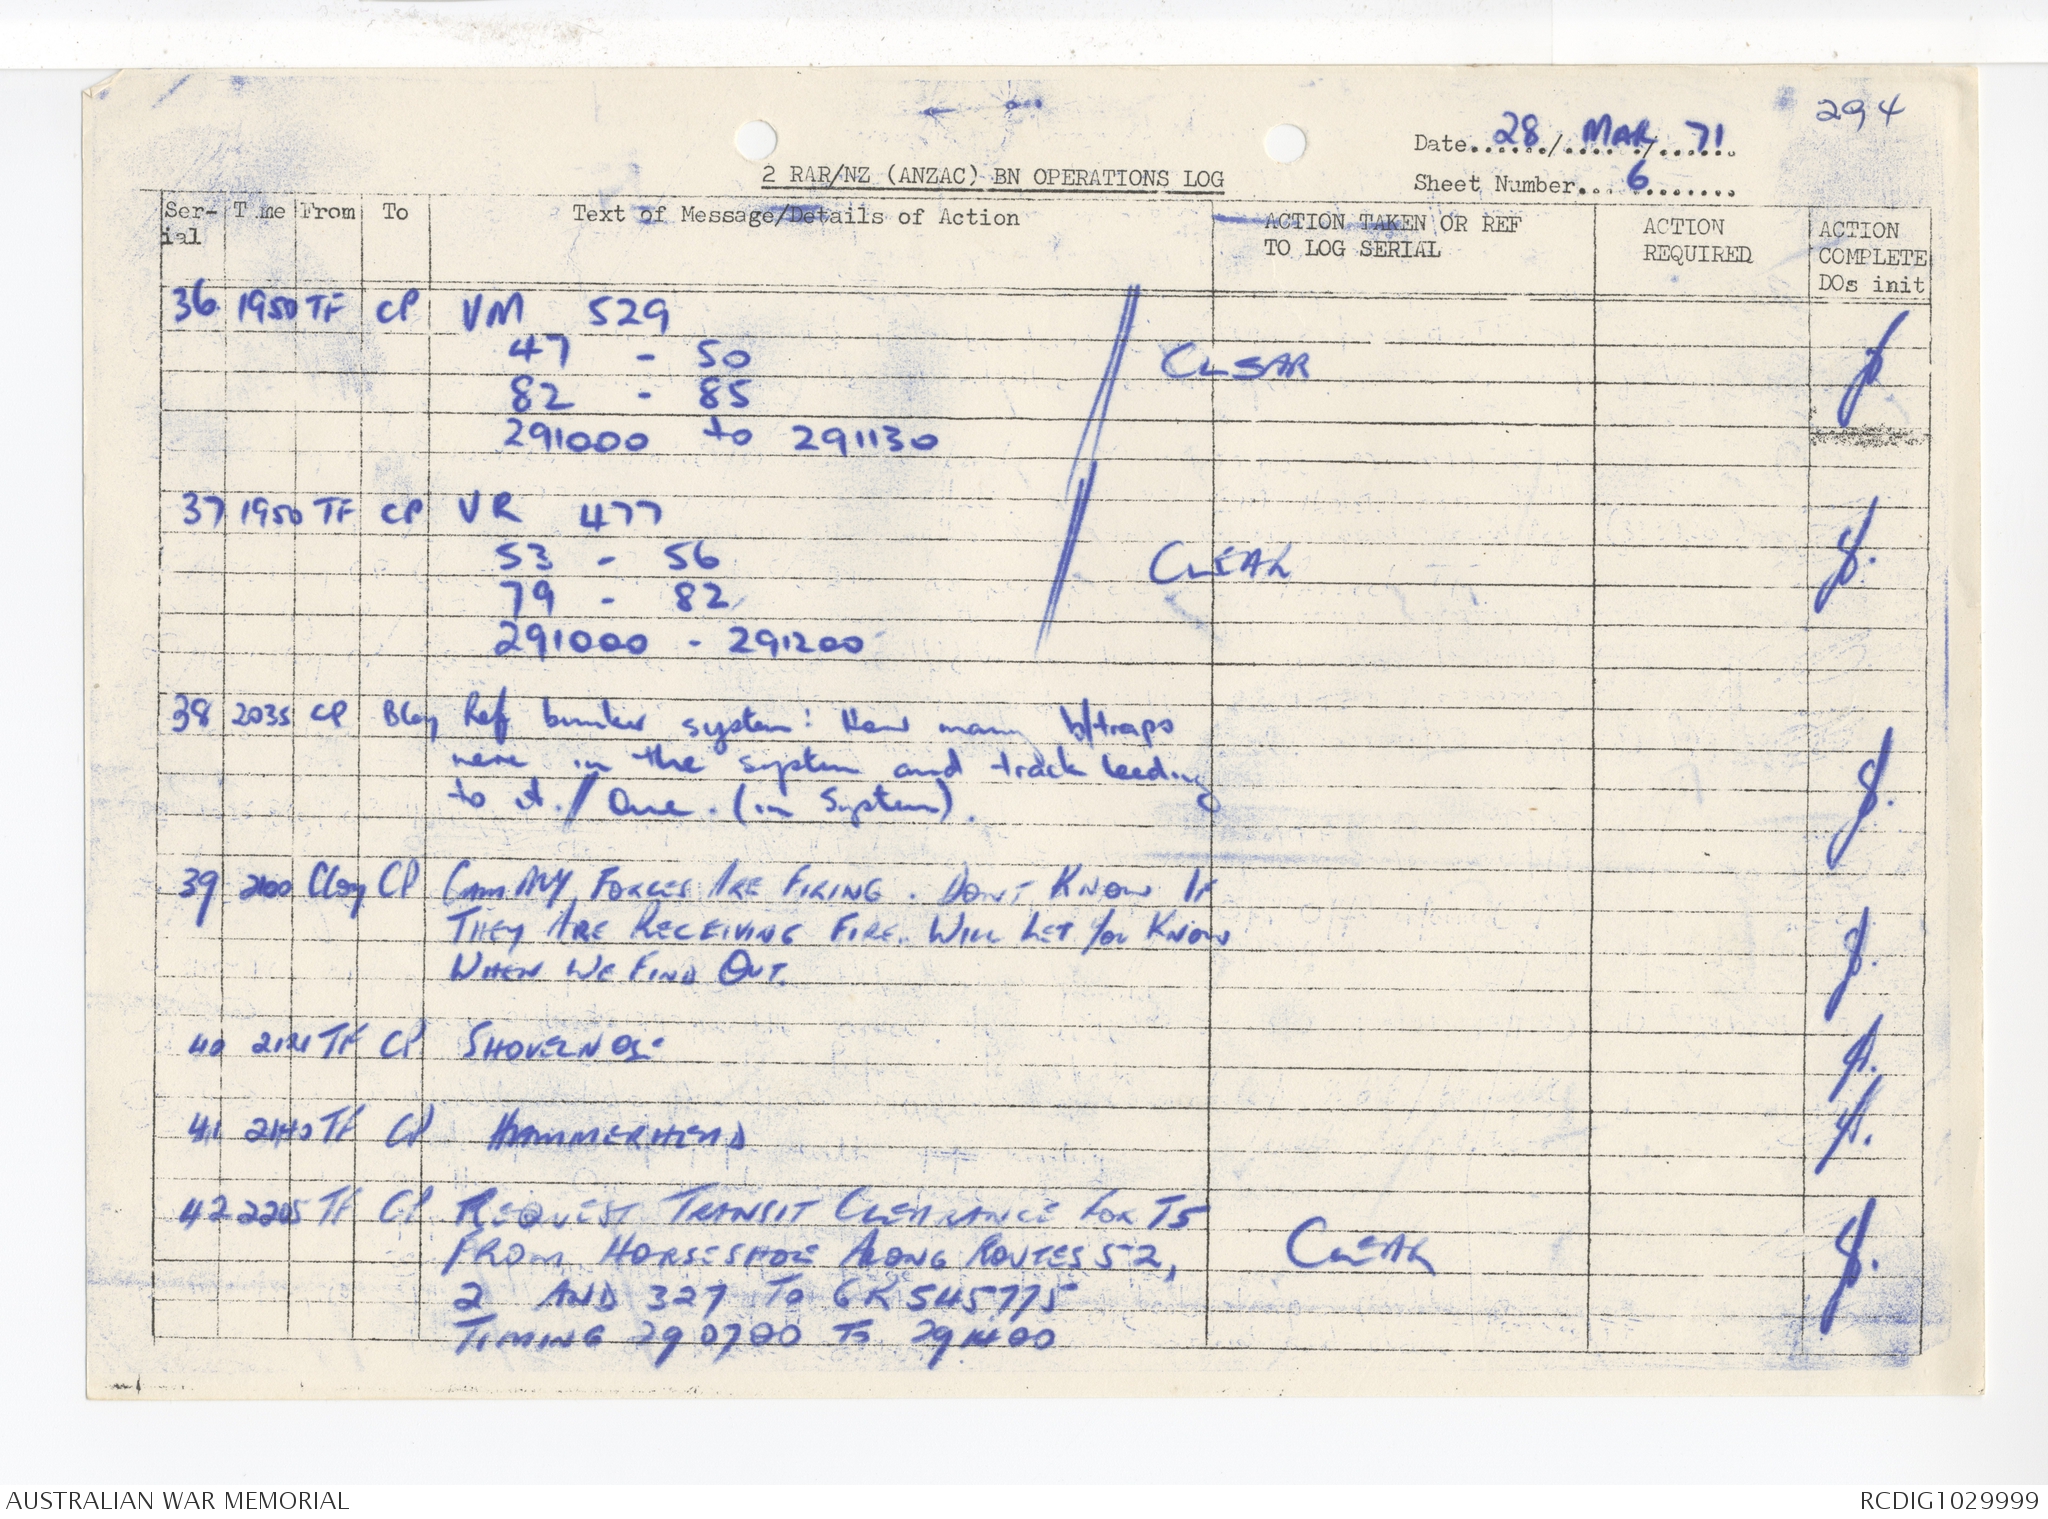 294
Date 28 / MAR / 71
2 RAR/NZ (ANZAC) BN OPERATIONS LOG
Sheet Number 6
Ser-ial Time From To Text of Message/Details of Action ACTION TAKEN OR REF TO LOG SERIAL ACTION REQUIRED ACTION COMPLETE DOs init
36. 1950 TF CP VM 529
47 - 50 CLEAR
82 - 85
291000 to 291130
37 1950 TF CP VR 477
53 - 56 CLEAR
79 - 82
291000 - 291200
38 2035 CP BCoy Ref bunker system: How many b/traps
were in the system and track leading
to it. / One. (in System).
39 2100 CCoy CP FORCES ARE FIRING. DONT KNOW IF
THEY ARE RECEIVING FIRE. WILL LET YOU KNOW
WHEN WE FIND OUT.
40 2121 TF CP SHOVELNOSE
41 2140 TF CP HAMMERHEAD
42 2205 TF CP REQUEST TRANSIT CLEARANCE FOR T5
FROM HORSESHOE ALONG ROUTES 52, CLEAR
2 AND 327 TO GR 545775
TIMING 290700 TO 291400
AUSTRALIAN WAR MEMORIAL
RCDIG1029999